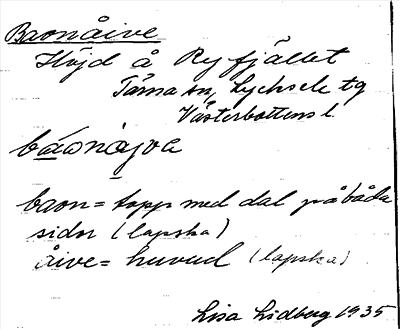 Baonåive
Höjd å Ryfjället
Tärna sn, Lycksele tg
Västerbottens l.
báo̱nåjva
baon = topp med dal på båda
sidor (lapska)
åive = huvud (lapska)
Lisa Lidberg 1935